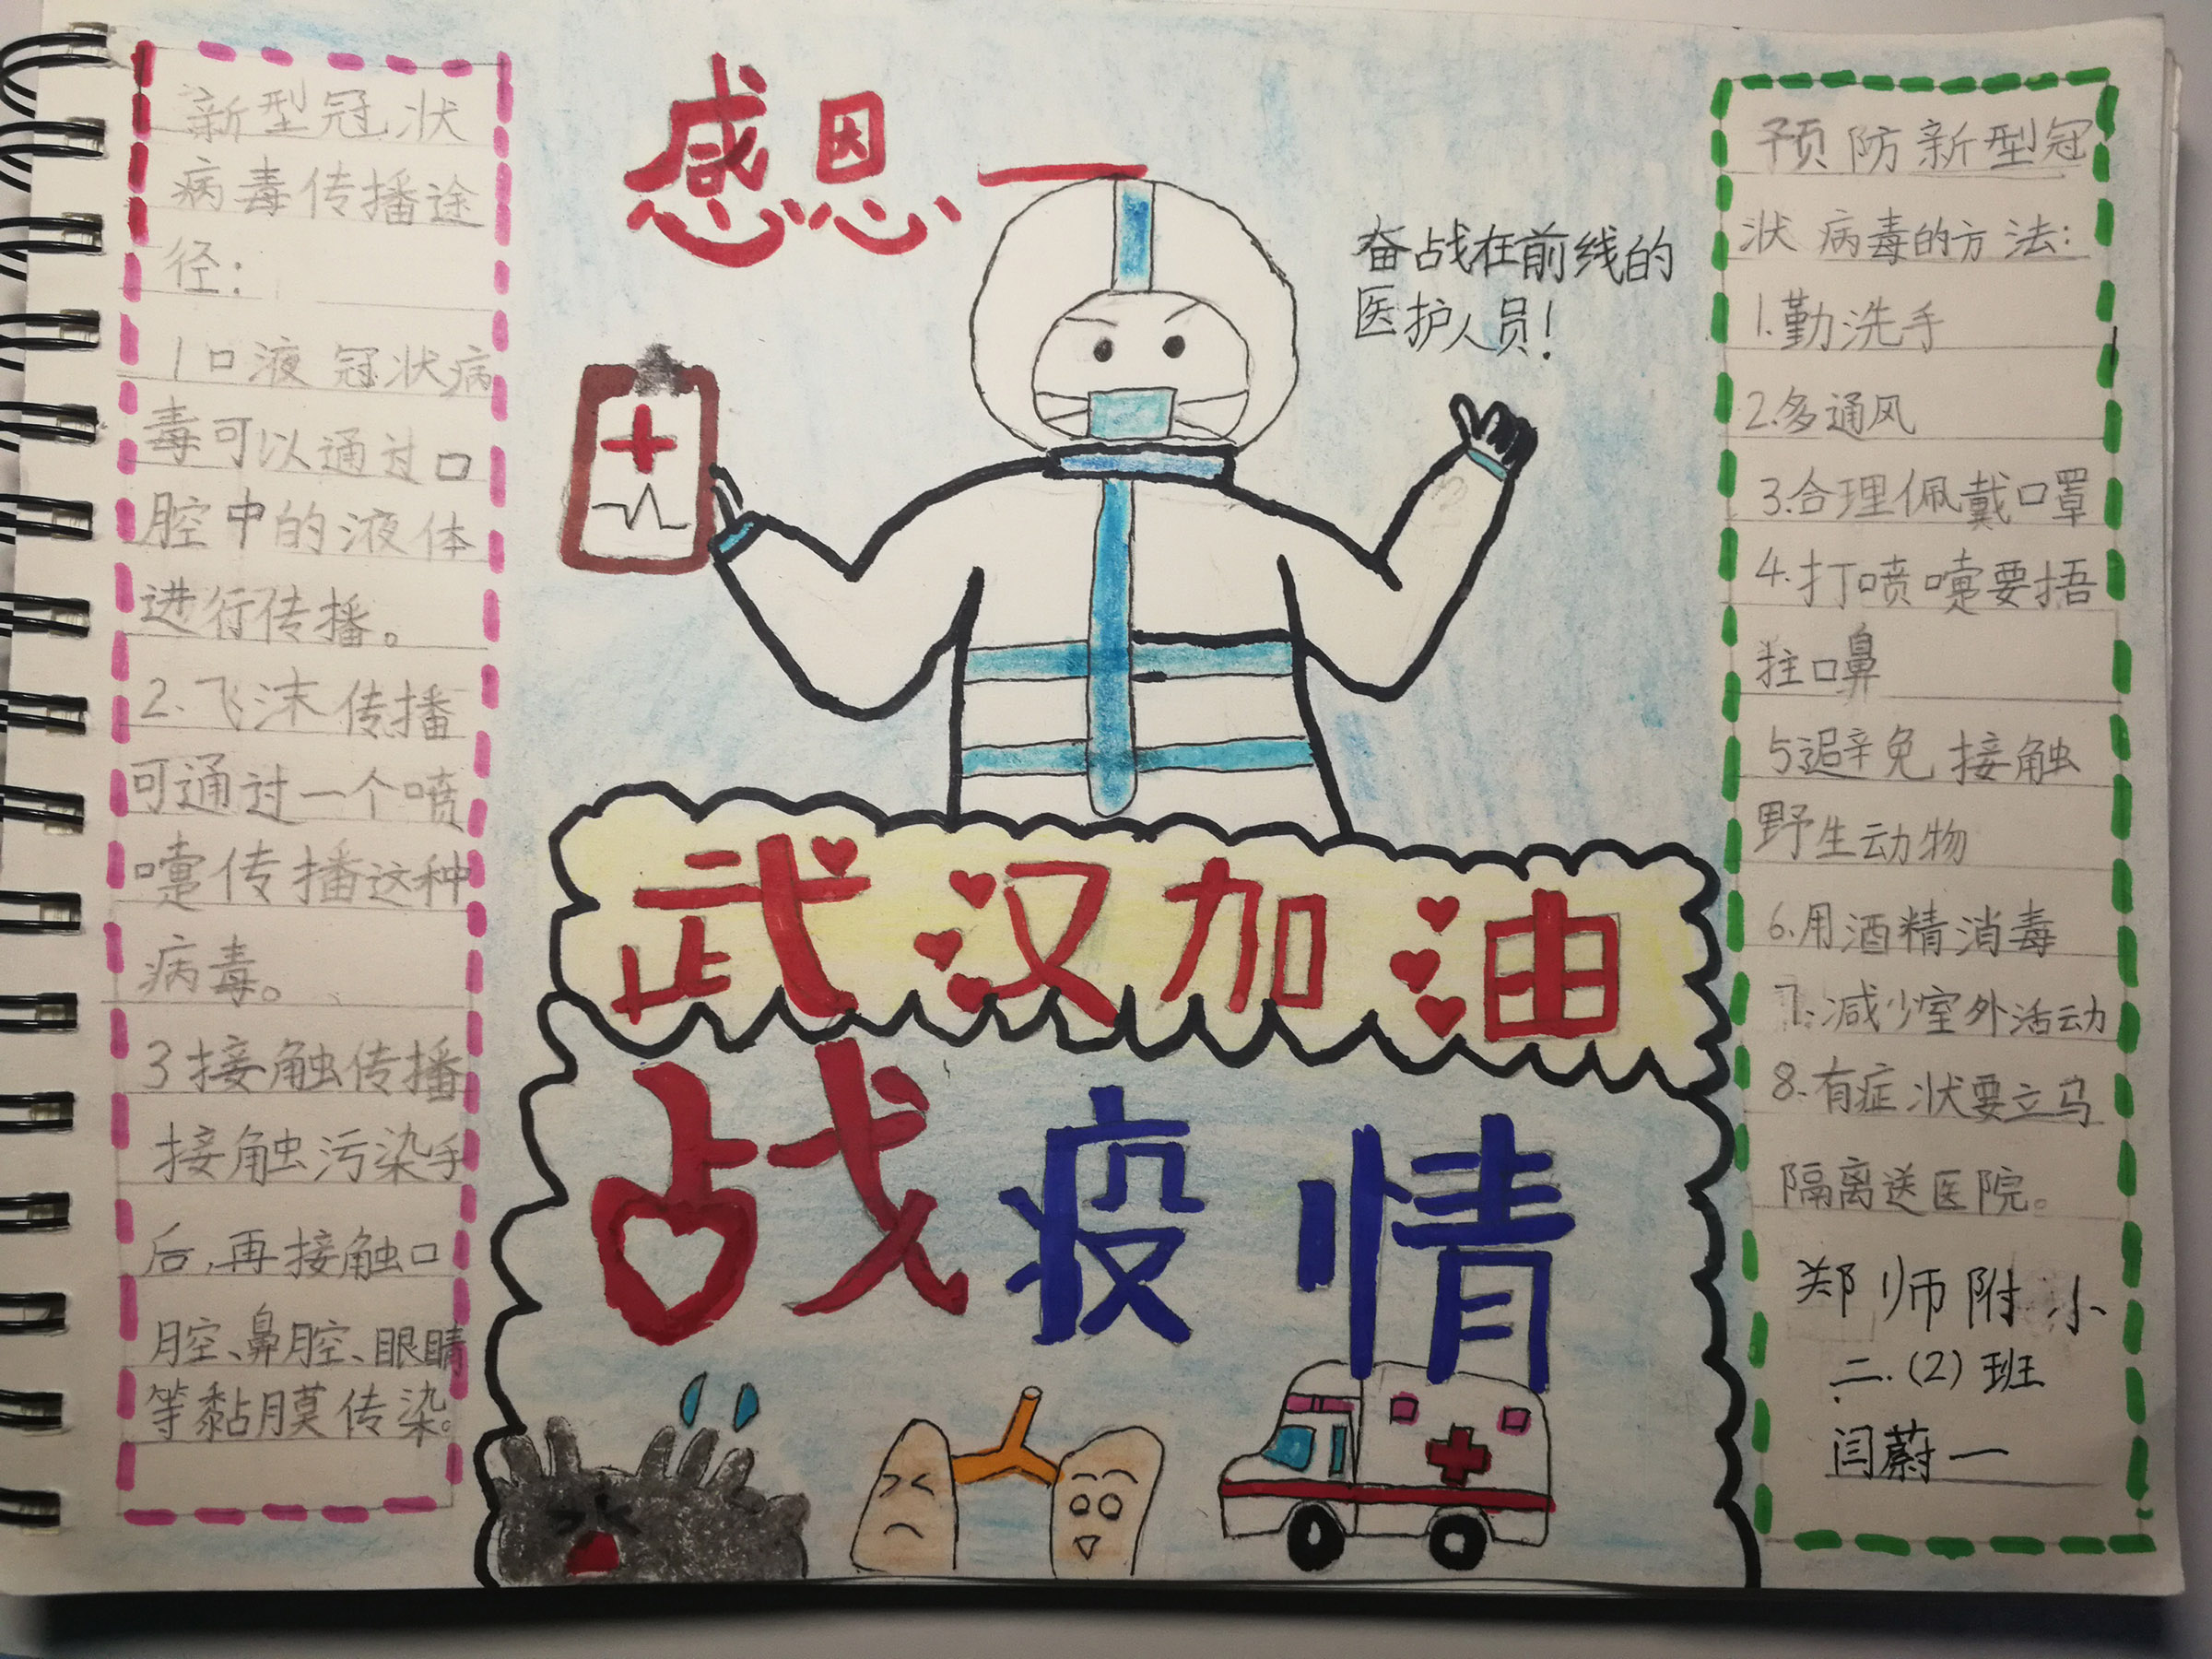 新型冠状
病毒传播途
径：
1口液 冠状病
毒可以通过口
腔中的液体
进行传播。
2.飞沫传播
可通过一个喷
嚏传播这种
病毒。
3接触传播
接触污染手
后，再接触口
腔、鼻腔、眼睛
等黏膜传染。
感恩一
奋战在前线的
医护人员！
武汉加油
战疫情
预防新型冠
状病毒的方法：
1.勤洗手
2.多通风
3.合理佩戴口罩
4.打喷嚏要捂
住口鼻
5避免接触
野生动物
6.用酒精消毒
7.减少室外活动
8.有症状要立马
隔离送医院。
郑师附小
二.(2)班
闫蔚一